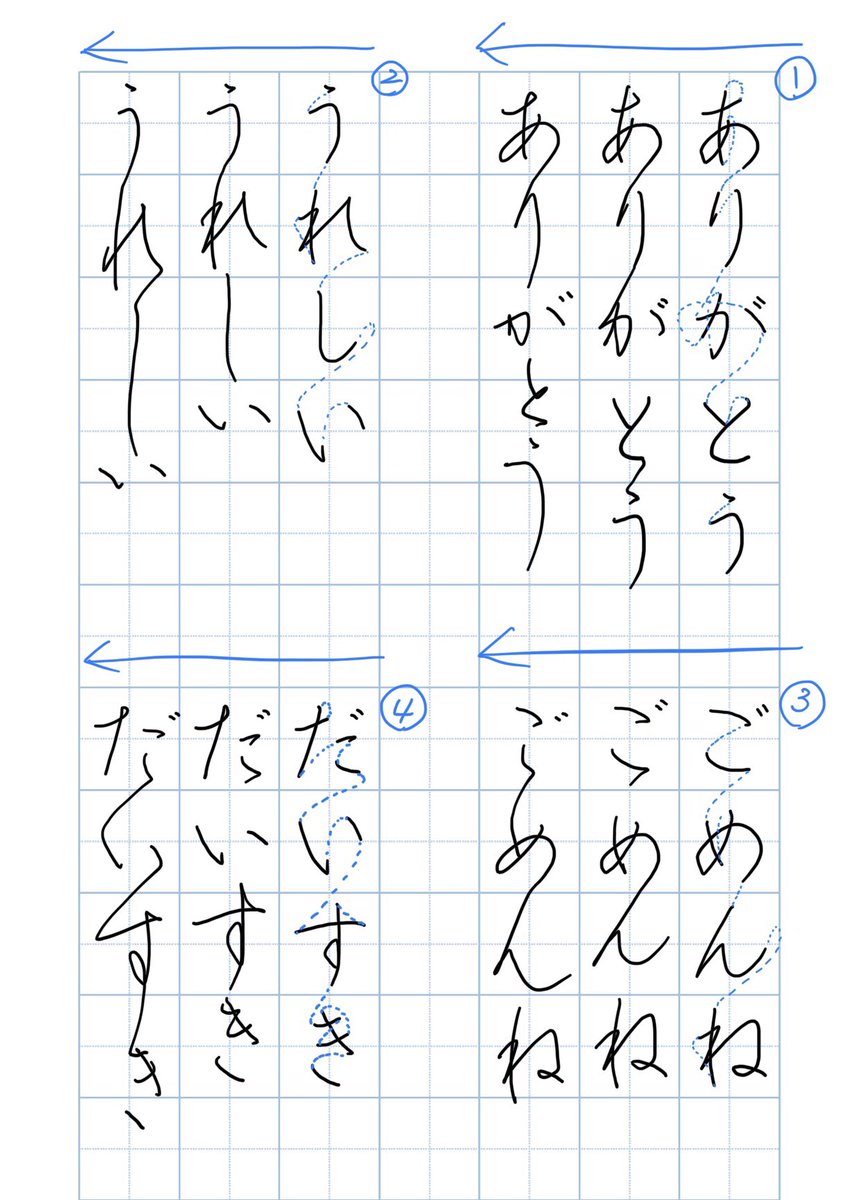 ①
ありがとう
ありがとう
ありがとう
②
うれしい
うれしい
うれしい
③
ごめんね
ごめんね
ごめんね
④
だいすき
だいすき
だいすき